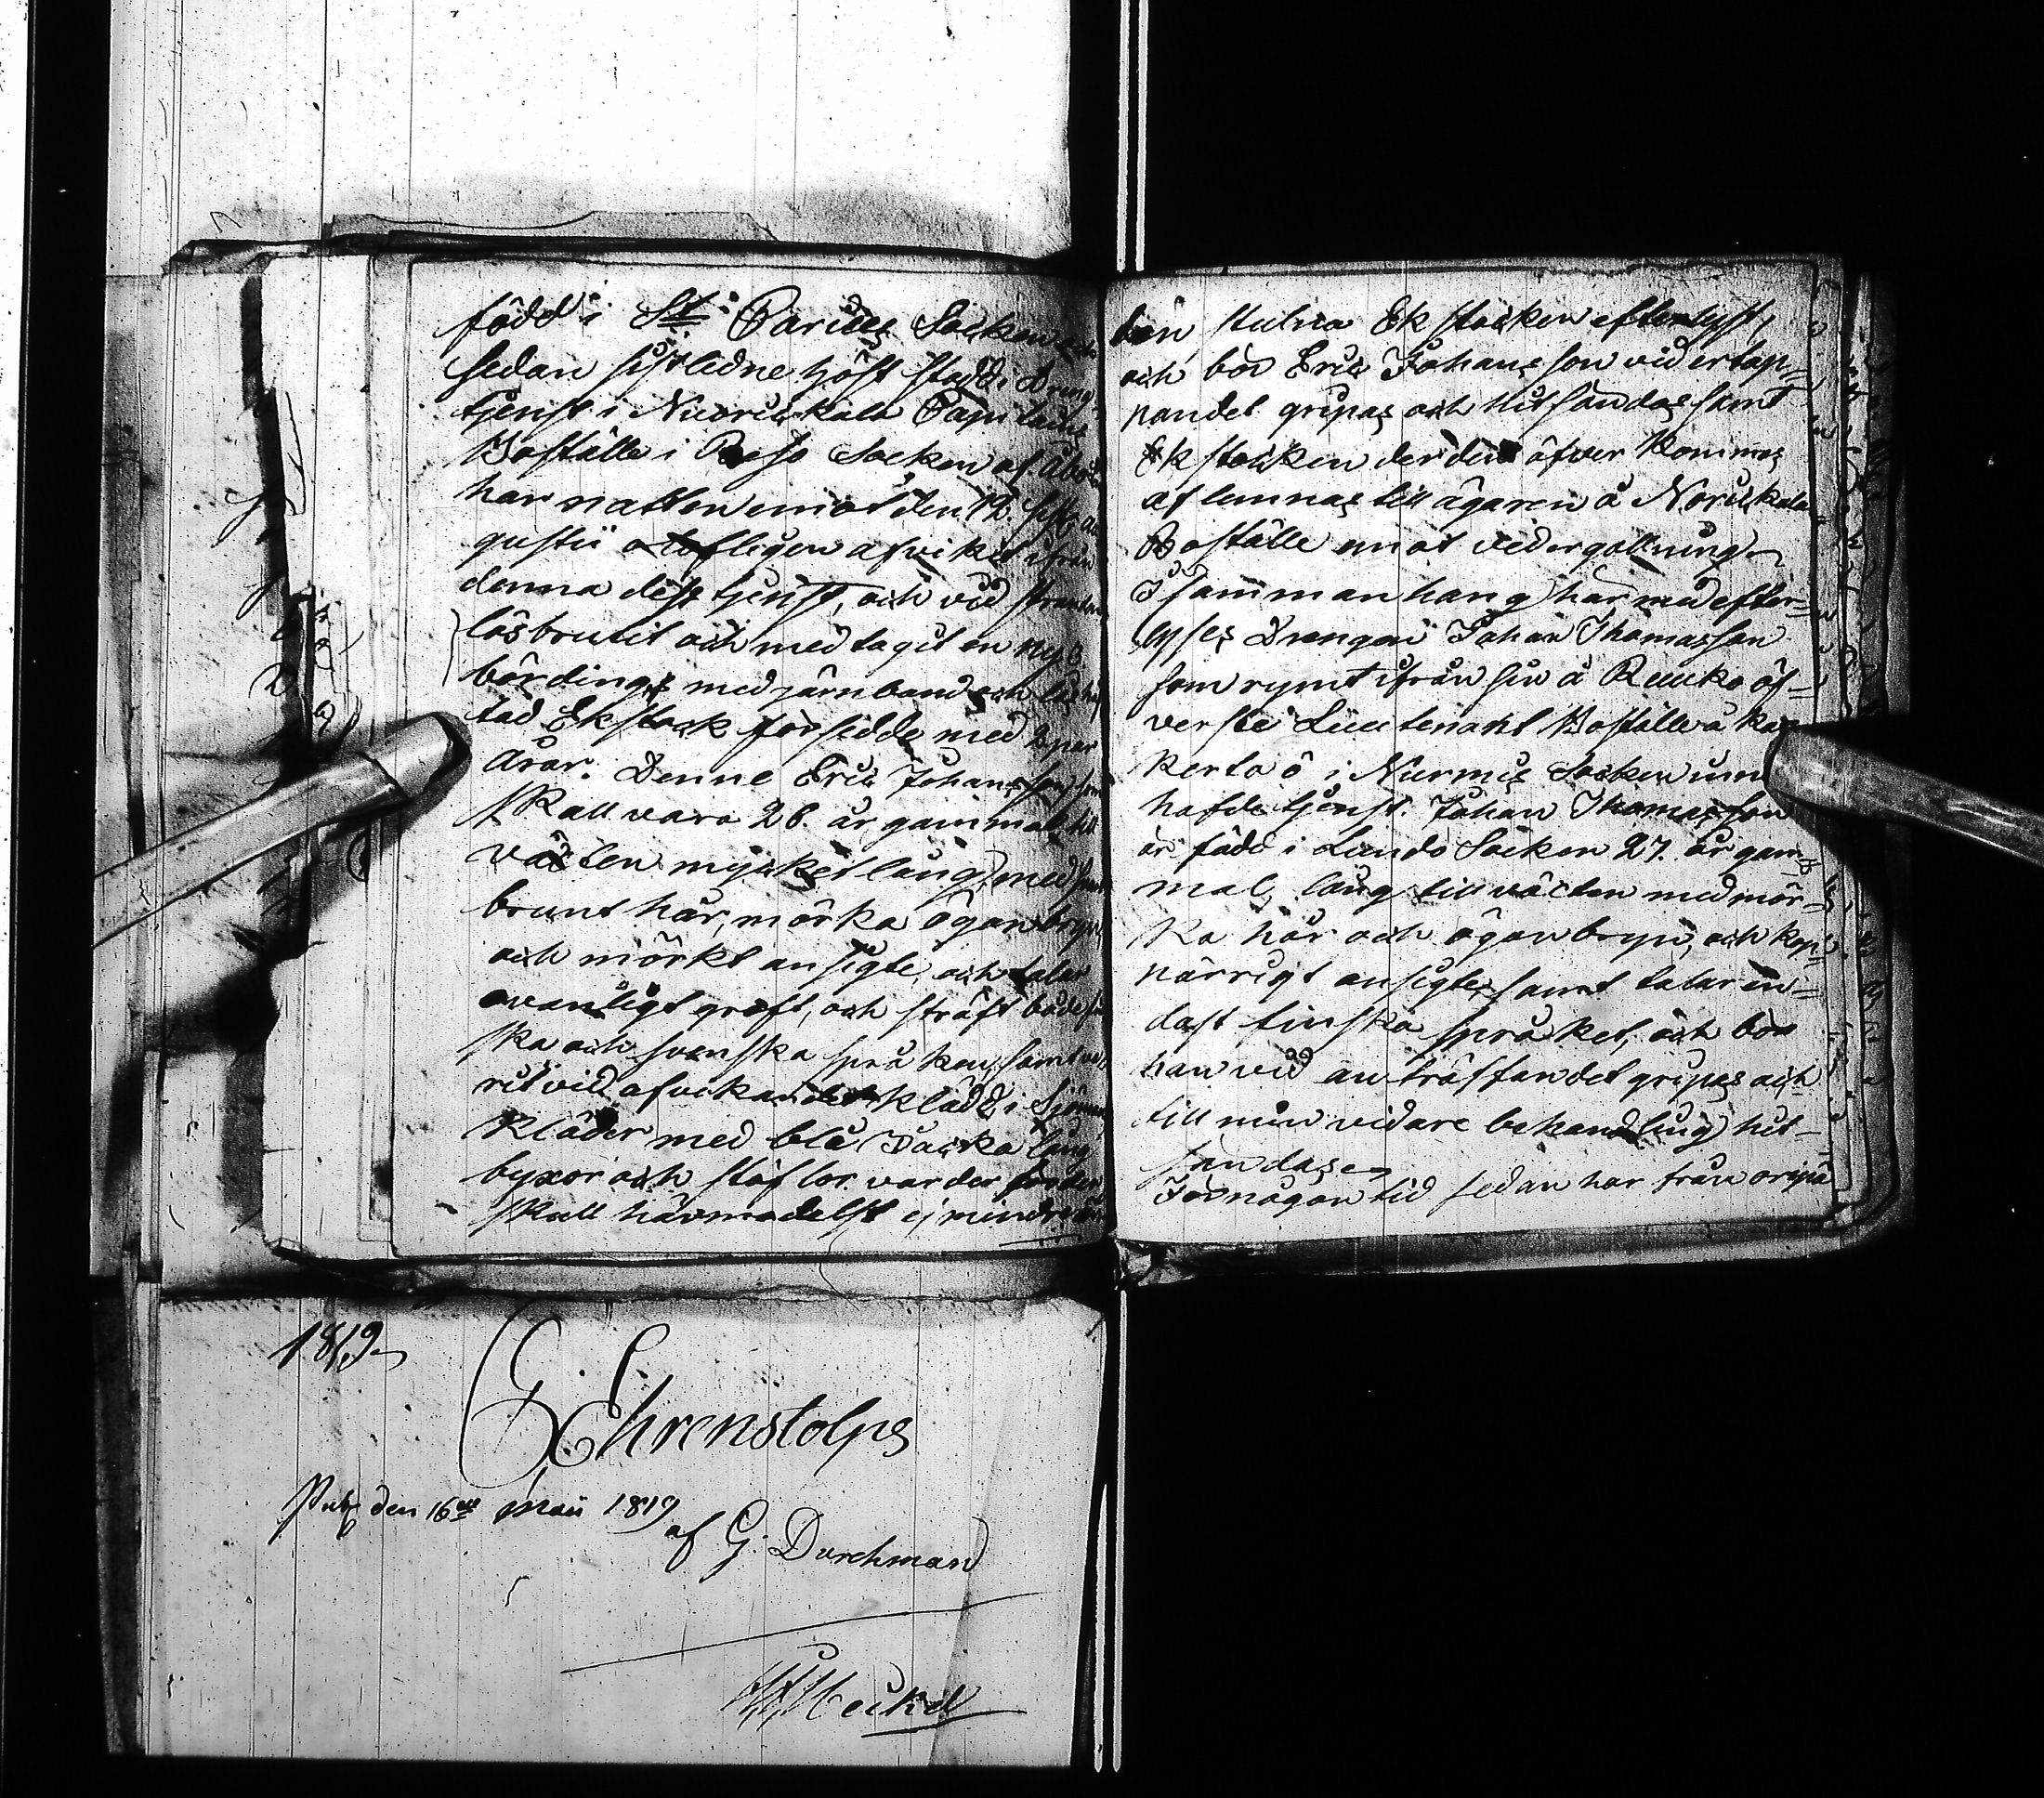 född i St: Pariels Socken och
sedan sistledne höst stadd i Dreng
tjenst i Nuoriskala Capitains
Boställe i Reso Socken af Åbo Län
har natten emot den 12. sistl. au
gustii olofligen afvikit ifrån
denna dess tjenst, och vid stranden
lösbrutit och med tagit en ny 3
bördings med järnband och
tad Ekstock försedde med 2 par
åror. Denne Eric Johansson som
skall vara 26. år gammal, till
växten mycket lång, med
brunt hår, mörka ögonbryn,
och mörkt ansigte, och talar
ovanligt groft, och sträft både fin
ska och svenska språken, samt va
rit vid afvikandet klädd i Sjömans
kläder med blå Jacka lång
byxor och stöflor varder
skull härmedelst ej mindre än
ben, stulna Ekstocken efterlyst,
och bör Eric Johansson vid ertap=
pandet gripas och hitsändas samt
Ekstocken der den öfver kommes
aflemnas till ägaren å Noriskala
Boställe emot vedergällning.
I sammanhang härmed efter=
lyses Drengen Johan Thomasson
som rymt ifrån sin å Rusko öf=
verste Lieutenant Boställe å
kerta ö i Nurmis Socken inne
hafde tjenst. Johan Thomasson
är född i Lundo Socken 27. år gam=
mal, lång till växten med mör=
ka hår och ögonbryn, och kop=
pärrigt ansigte, samt talar en=
dast finska språket, och bör
han vid anträffandet gripas och
till min vidare behandling hit=
sändas.
För någon tid sedan har från
1819
G: Ehrenstolpe
Publ den 16de Maii 1819
af G. Durchman
Heikel